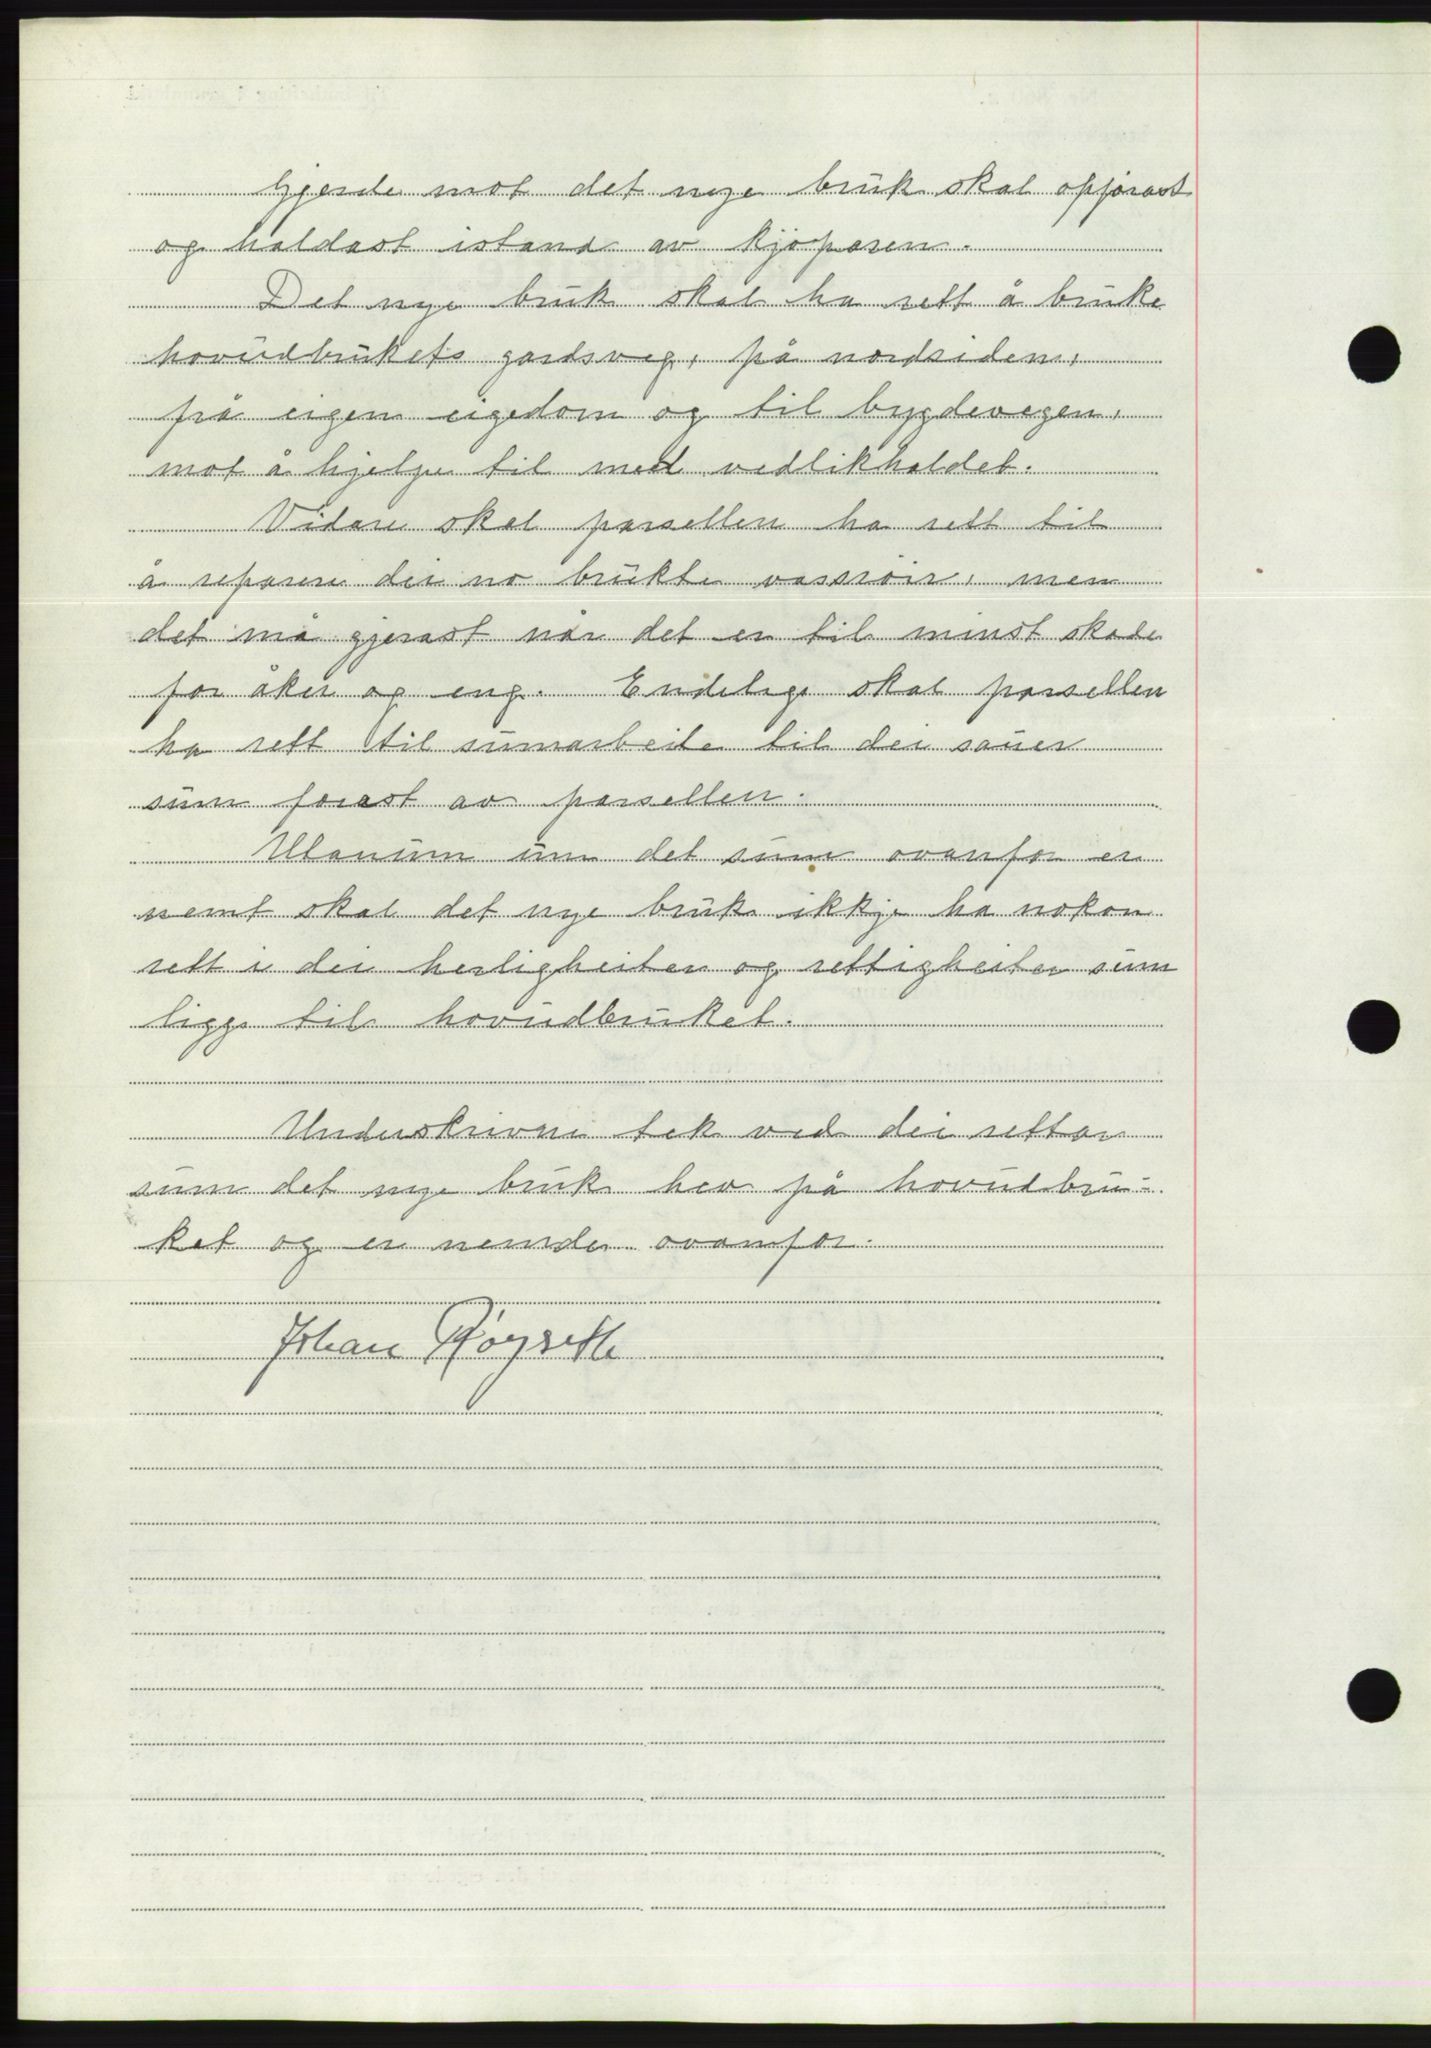 Gjerde mot det nye bruk skal opförast
og haldast istand av kjöparen.
Det nye bruk skal ha rett å bruke
hovudbrukets gardsveg, på nordsiden,
frå eigen eigedom og til bygdevegen,
mot å hjelpe til med vedlikhaldet.
Vidare skal parsellen ha rett til
å reparere dei no brukte vassröir, men
det må gjerast når det er til minst skade
for åker og eng. Endeleg skal parsellen
ha rett til sumarbeite til dei sauer
sum forast av parsellen.
Utanum um det sum ovanfor er
nemt skal det nye bruk ikkje ha nokon
rett i dei herligheiter og rettigheiter sum
ligg til hovudbruket.
Underskrivne tek ved dei rettar
sum det nye bruk hev på hovudbru-
ket og er nemde ovanfor.
Johan Röyseth